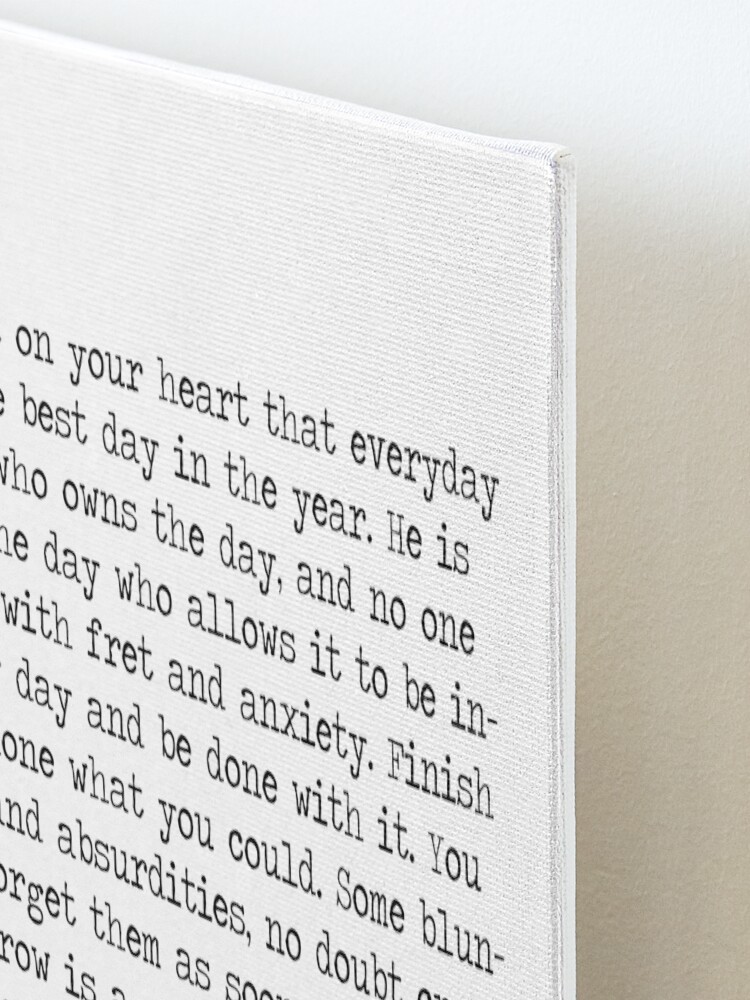 on your heart that everyday
best day in the year. He is
who owns the day, and no one
day who allows it to be in-
with fret and anxiety. Finish
day and be done with it. You
what you could. Some blun-
absurdities, no doubt
them as
is a